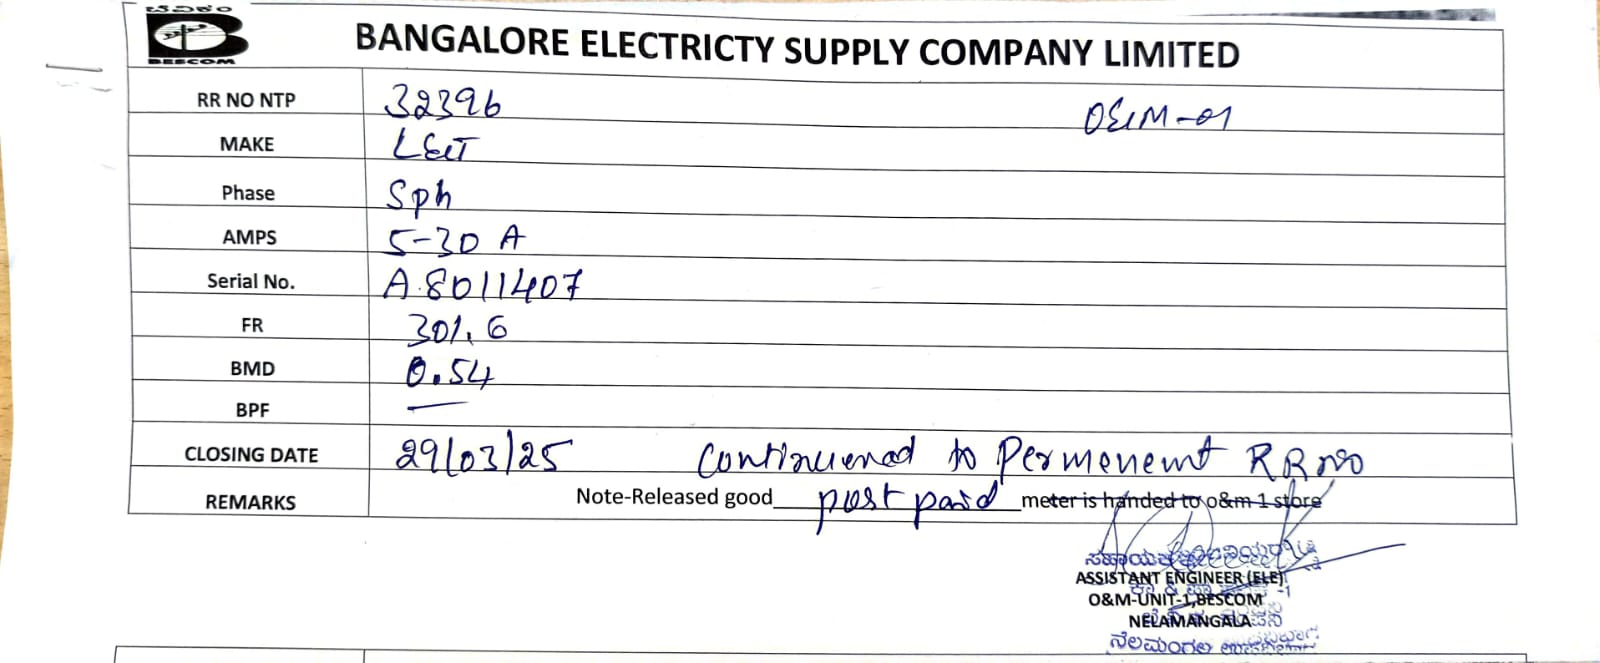 ಬೆವಿಕಂ
BESCOM
BANGALORE ELECTRICTY SUPPLY COMPANY LIMITED
RR NO NTP 32396 O&M-01
MAKE L&T
Phase Sph
AMPS 5-30 A
Serial No. A 8011407
FR 301.6
BMD 0.54
BPF —
CLOSING DATE 29/03/25 Continuened to Permenemt RR no
REMARKS Note-Released good post paid meter is handed to o&m 1 store
ASSISTANT ENGINEER (ELE)
O&M-UNIT-1,BESCOM
NELAMANGALA
ನೆಲಮಂಗಲ